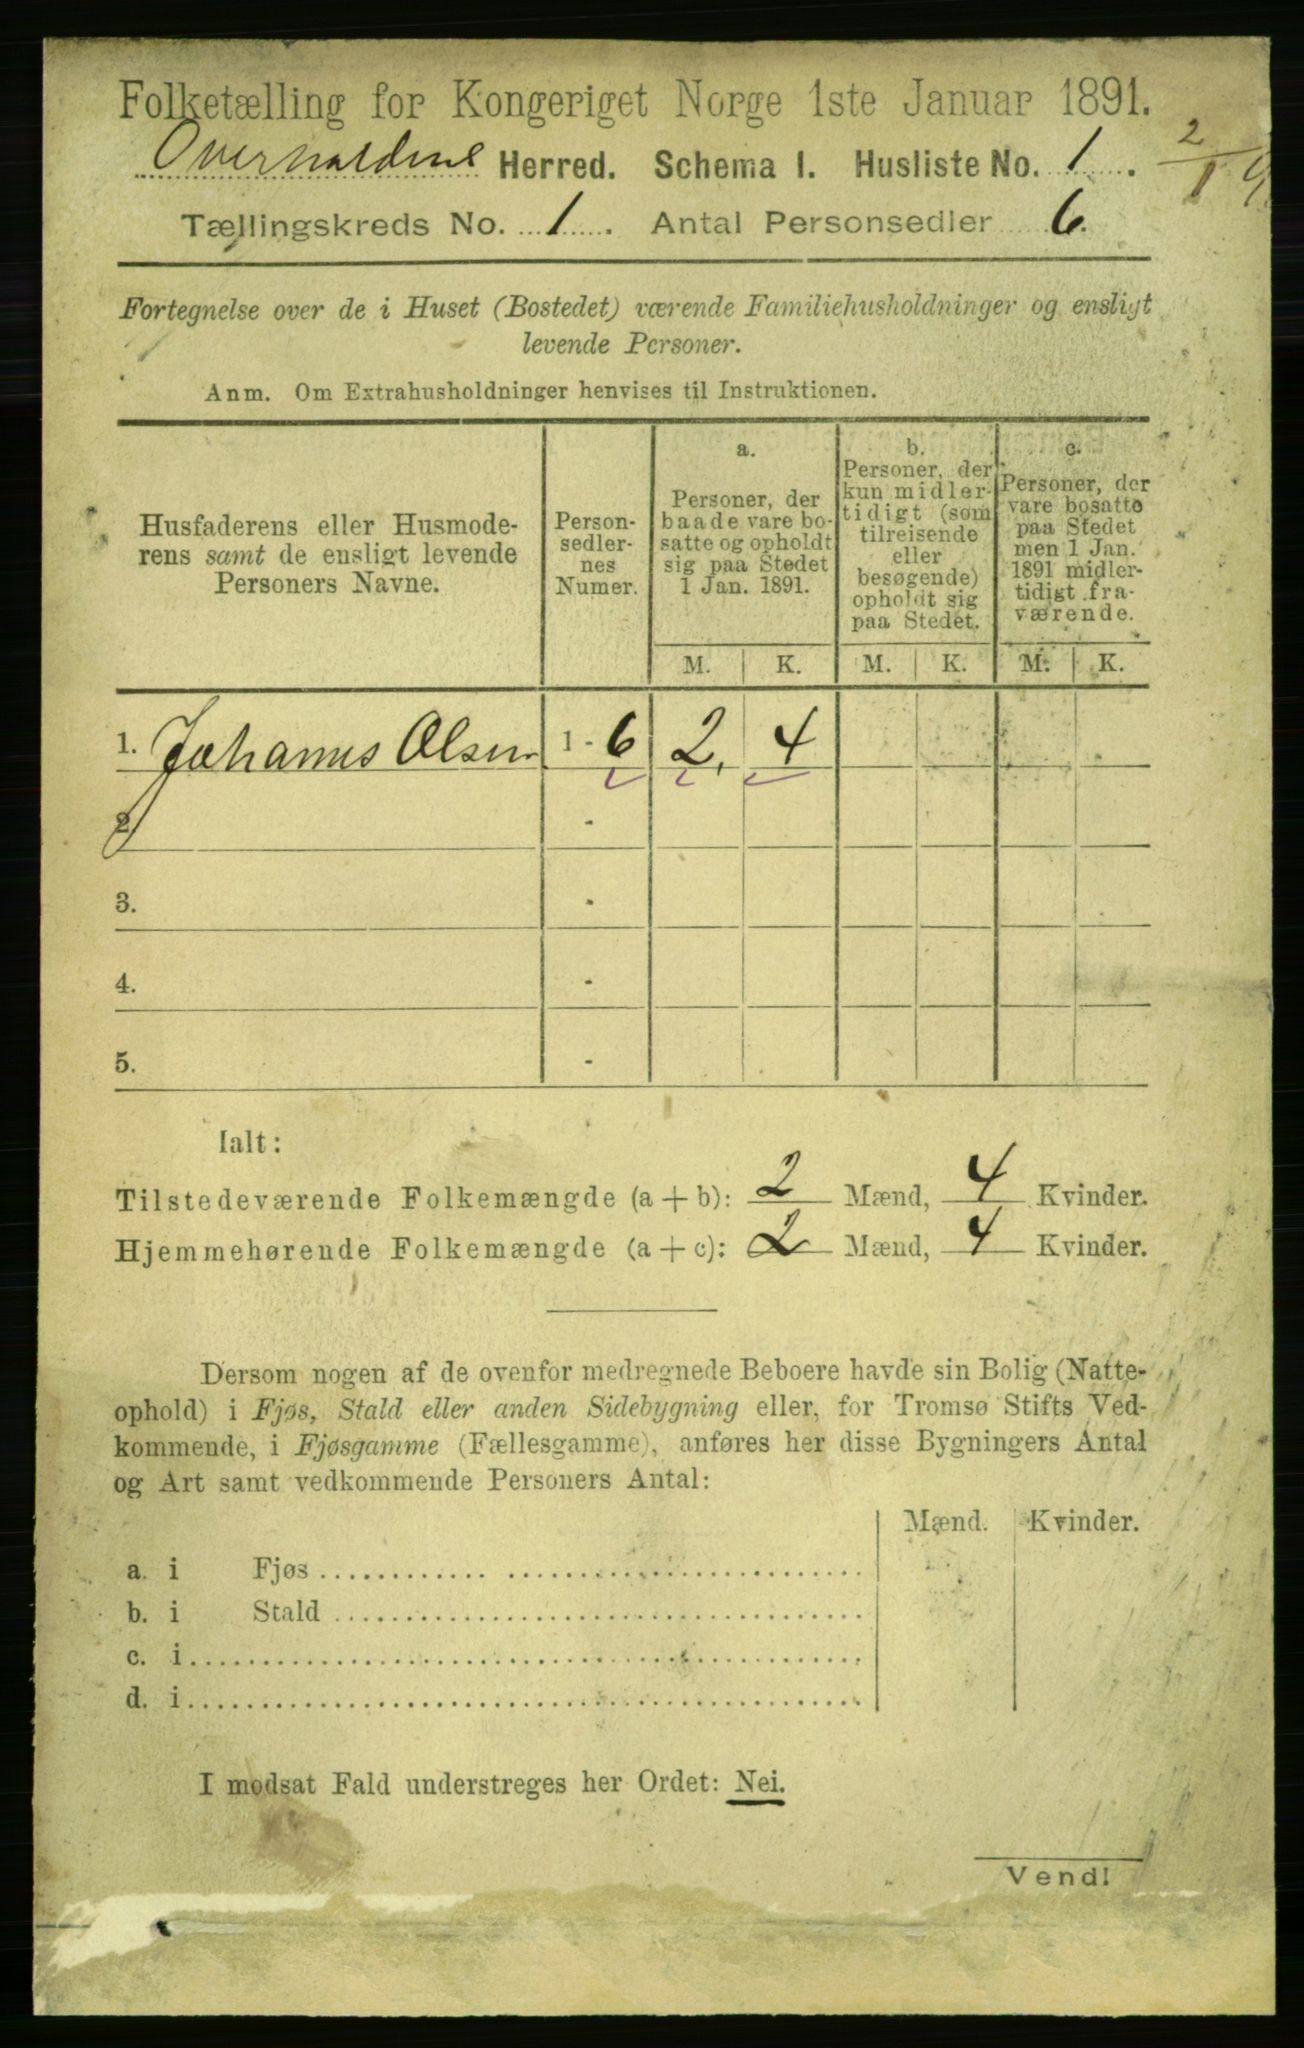 Folketælling for Kongeriget Norge 1ste Januar 1891.
Overhaldens Herred. Schema 1. Husliste No. 1. 2/1 9
Tællingskreds No. 1. Antal Personsedler 6.
Fortegnelse over de i Huset (Bostedet) værende Familiehusholdninger og ensligt
levende Personer.
Anm. Om Extrahusholdninger henvises til Instruktionen.
Husfaderens eller Husmode-
rens samt de ensligt levende
Personers Navne.
Person-
sedler-
nes
Numer.
a.
Personer, der
baade vare bo-
satte og opholdt
sig paa Stedet
1 Jan. 1891.
b.
Personer, der
kun midler-
tidigt (som
tilreisende
eller
besøgende)
opholdt sig
paa Stedet.
c.
Personer, der
vare bosatte
paa Stedet
men 1 Jan.
1891 midler-
tidigt fra-
værende.
M. K. M. K. M. K.
1. Johannes Olsen 1 - 6 2, 4
2. -
3. -
4. -
5. -
Ialt:
Tilstedeværende Folkemængde (a + b): 2 Mænd, 4 Kvinder.
Hjemmehørende Folkemængde (a + c): 2 Mænd, 4 Kvinder.
Dersom nogen af de ovenfor medregnede Beboere havde sin Bolig (Natte-
ophold) i Fjøs, Stald eller anden Sidebygning eller, for Tromsø Stifts Ved-
kommende, i Fjøsgamme (Fællesgamme), anføres her disse Bygningers Antal
og Art samt vedkommende Personers Antal:
Mænd. Kvinder.
a. i Fjøs
b. i Stald
c. i
d. i
I modsat Fald understreges her Ordet: Nei.
Vend!